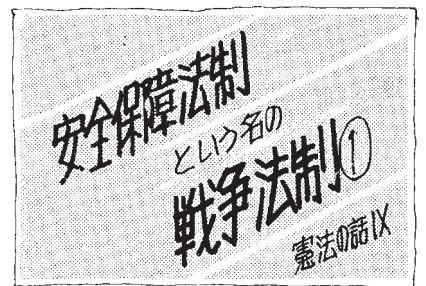 安全保障法制
という名の
戦争法制①
憲法の話IX